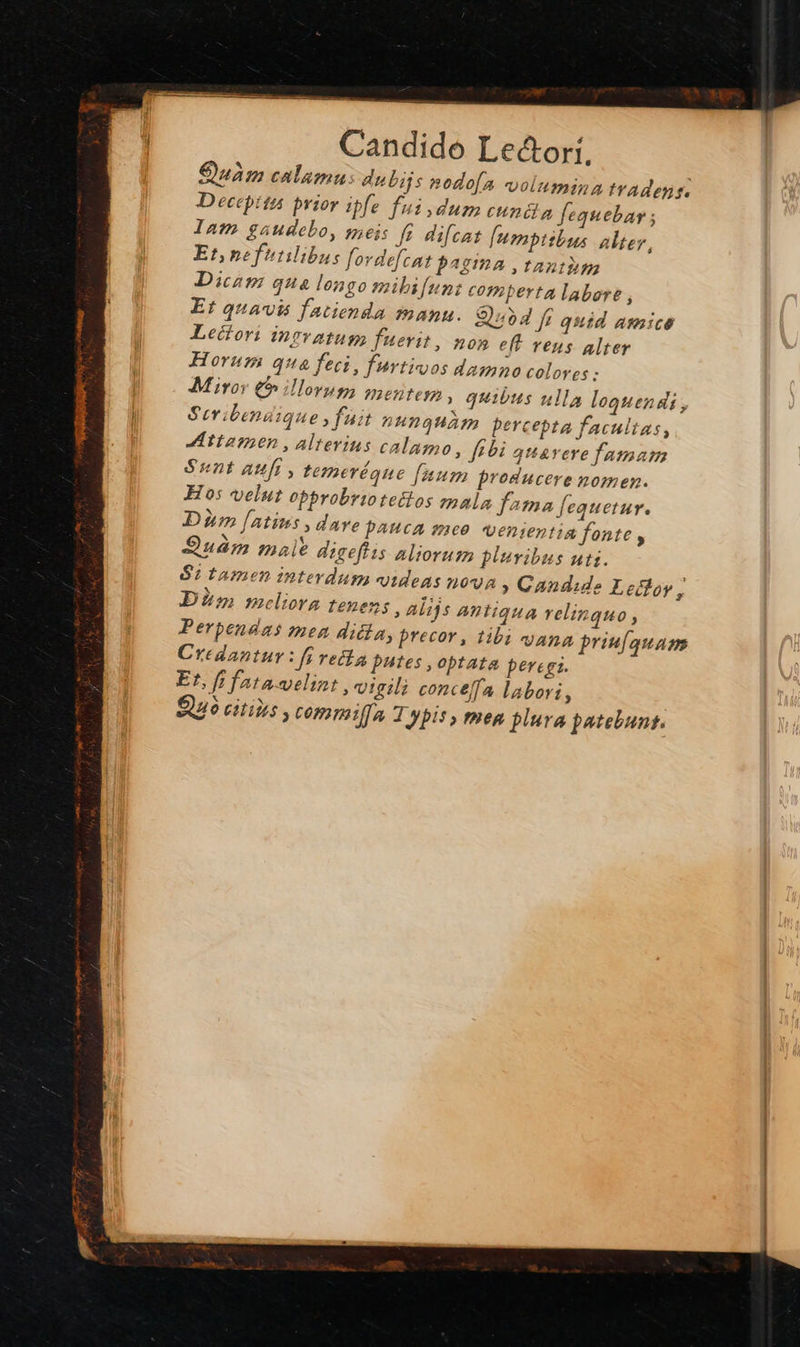 Candido Lectori.
Quàm calamus dubijs nodoſa volumina tradens.
Decepitus prior ipſe fui, dum cuncta ſequebar;
Iam gaudebo, meis ſi diſcat ſumptibus alter,
Et, ne futilibus ſordeſcat pagina, tantùm
Dicam quæ longo mihi ſunt comperta labore,
Et quavis facienda manu. Quòd ſi quid amicè
Lectori ingratum fuerit, non eſt reus alter
Horum quæ feci, furtivos damno colores:
Miror & illorum mentem, quibus ulla loquendi,
Scribendique, fuit nunquàm percepta facultas,
Attamen, alterius calamo, ſibi quærere famam
Sunt auſi, temeréque ſuum producere nomen.
Hos velut opprobrio tectos mala fama ſequetur.
Dùm ſatius, dare pauca meo venientia fonte,
Quàm malè digeſtis aliorum pluribus uti.
Si tamen interdum videas nova, Candide Lector,
Dùm meliora tenens, alijs antiqua relinquo,
Perpendas mea dicta, precor, tibi vana priuſquam
Credantur: ſi recta putes, optata peregi.
Et, ſi fata velint, vigili conceſſa labori,
Quò citiùs, commiſſa Typis, mea plura patebunt.